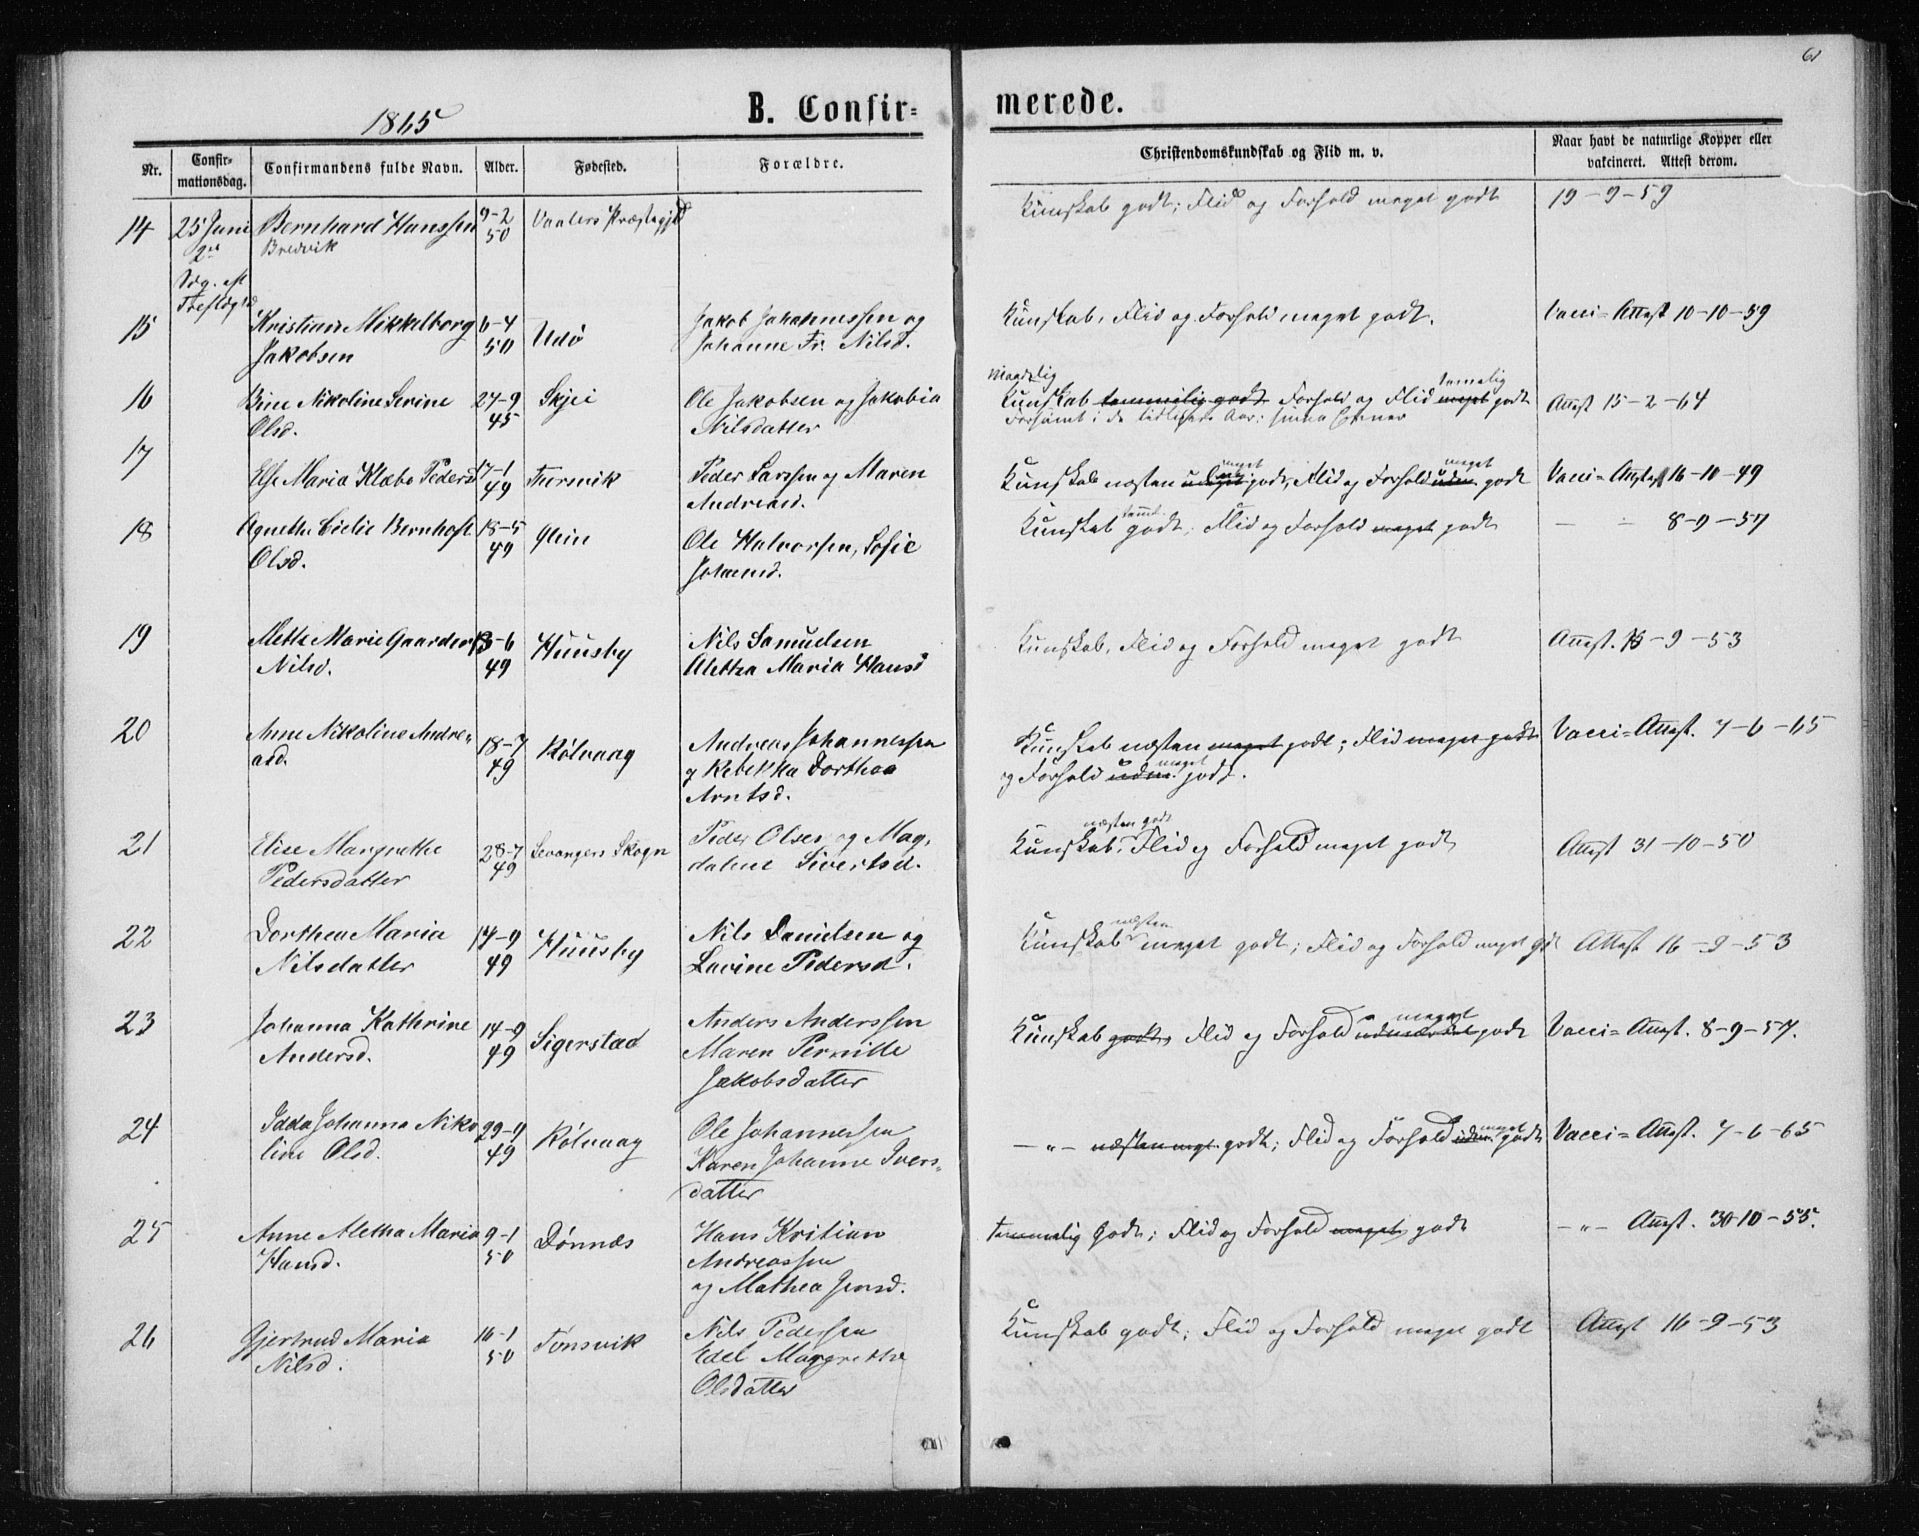 61
1865
B. Confirmerede.
Nr. Confirmationsdag. Confirmandens fulde Navn. Alder. Fødested. Forældre. Christendomskundskab og Flid m. v. Naar havt de naturlige Kopper eller vakcineret. Attest derom.
14 25 Juni Bernhard Hanssen 9-2 50 Vaalers Præstegjd Kunskab godt; Flid og Forhold meget godt 19-9-59
Bredvik
Trefldgsd
15 Kristian Mikkelborg 6-4 50 Udø Jakob Johannessen og Kunskab, Flid og Forhold meget godt. Vacci-Attest 10-10-59
Jakobsen Johanne Fr. Nilsd.
16 Bine Nikoline Serine 27-9 45 Skjei Ole Jakobsen og Jakobia Kunskab temmelig godt Forhold og Flid meget godt Attest 15-2-64
Olsd. Nilsdatter Forsømt i de tidligere Aar
17 Else Maria Klæbo Pedersd 17-1 49 Thorsvik Peder Larssen og Maren Kunskab næsten meget godt, Flid og Forhold meget godt Vacci-Attest 16-10-49
Andreasd.
18 Agnethe Bernhoft 18-5 49 Glein Ole Halvorsen, Sofie Kunskab godt, Flid og Forhold meget godt 8-9-57
Olsd. Johansd.
19 Mette Marie Gaarder 13-6 49 Huusby Nils Samuelsen Kunskab, Flid og Forhold meget godt Attest. 16-9-53
Nilsd. Alethea Maria Hansd
20 Anne Nikoline Andreasd. 18-7 49 Kølvaag Andreas Johannessen Kunskab næsten meget godt; Flid meget godt Vacci-Attest. 7-6-65
og Rebekka Dorthea og Forhold udm. meget godt.
Arntsd.
21 Elise Margrethe 28-7 49 Levangers Skogn Peder Olsen og Magdalene Sivertsd. Kunskab næsten godt, Flid og Forhold meget godt Attest 31-10-50
Pedersdatter
22 Dorthea Maria 14-9 49 Huusby Nils Danielsen og Kunskab næsten meget godt; Flid og Forhold meget gdt Attest 16-9-53
Nilsdatter Lavine Pedersd.
23 Johanna Kathrine 14-9 49 Sigerstad Anders Anderssen Kunskab godt, Flid og Forhold udmærket meget godt Vacci-Attest. 8-9-57.
Andersd. Maren Pernille
Jakobsdatter
24 Idda Johanna Nikoline Olsd. 29-9 49 Kølvaag Ole Johannessen -"- næsten mgt. godt; Flid og Forhold udm. meget godt Vacci-Attest. 7-6-65
Karen Johanne Iversdatter
25 Anne Aletha Maria 9-1 50 Dønnæs Hans Kristian temmelig Godt; Flid og Forhold meget godt -"- Attest. 30-10-55.
Hansd. Andreassen
og Mathea Jensd.
26 Gjertrud Maria 16-1 50 Tonsvik Nils Pederssen Kunskab godt; Flid og Forhold meget godt Attest 16-9-53
Nilsd. Edel Margrethe
Olsdatter